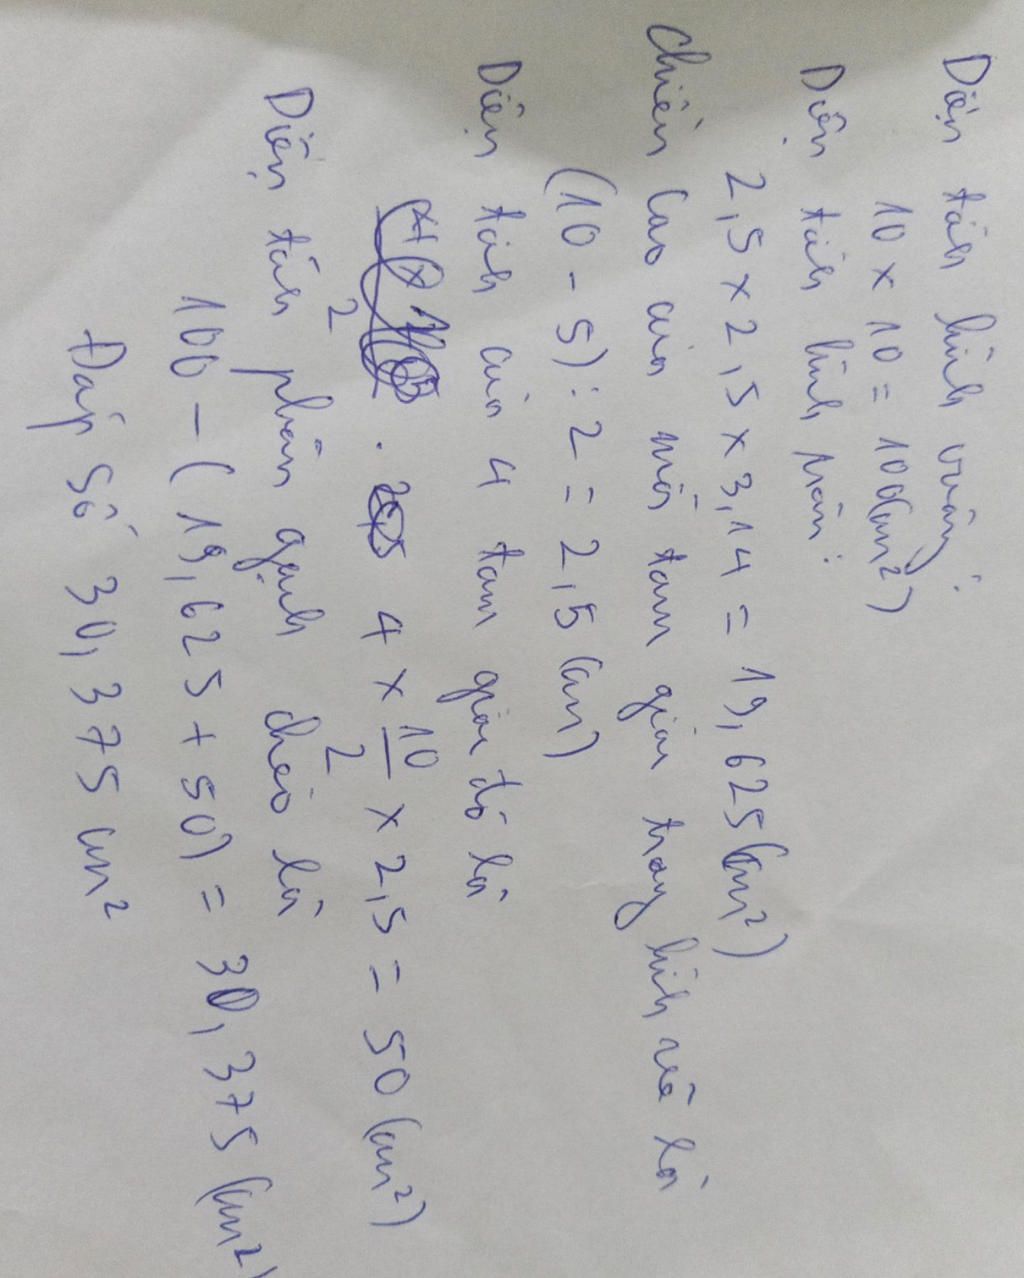 Diện tích hình vuông:
10 x 10 = 100(cm²)
Diện tích hình tròn:
2,5 x 2,5 x 3,14 = 19,625(cm²)
Chiều cao của mỗi tam giác trong hình vẽ là
(10 - 5) : 2 = 2,5 (cm)
Diện tích của 4 tam giác đó là
4 x 10/2 x 2,5 = 50 (cm²)
Diện tích phần gạch chéo là
100 - (19,625 + 50) = 30,375 (cm²)
Đáp số 30,375 cm²